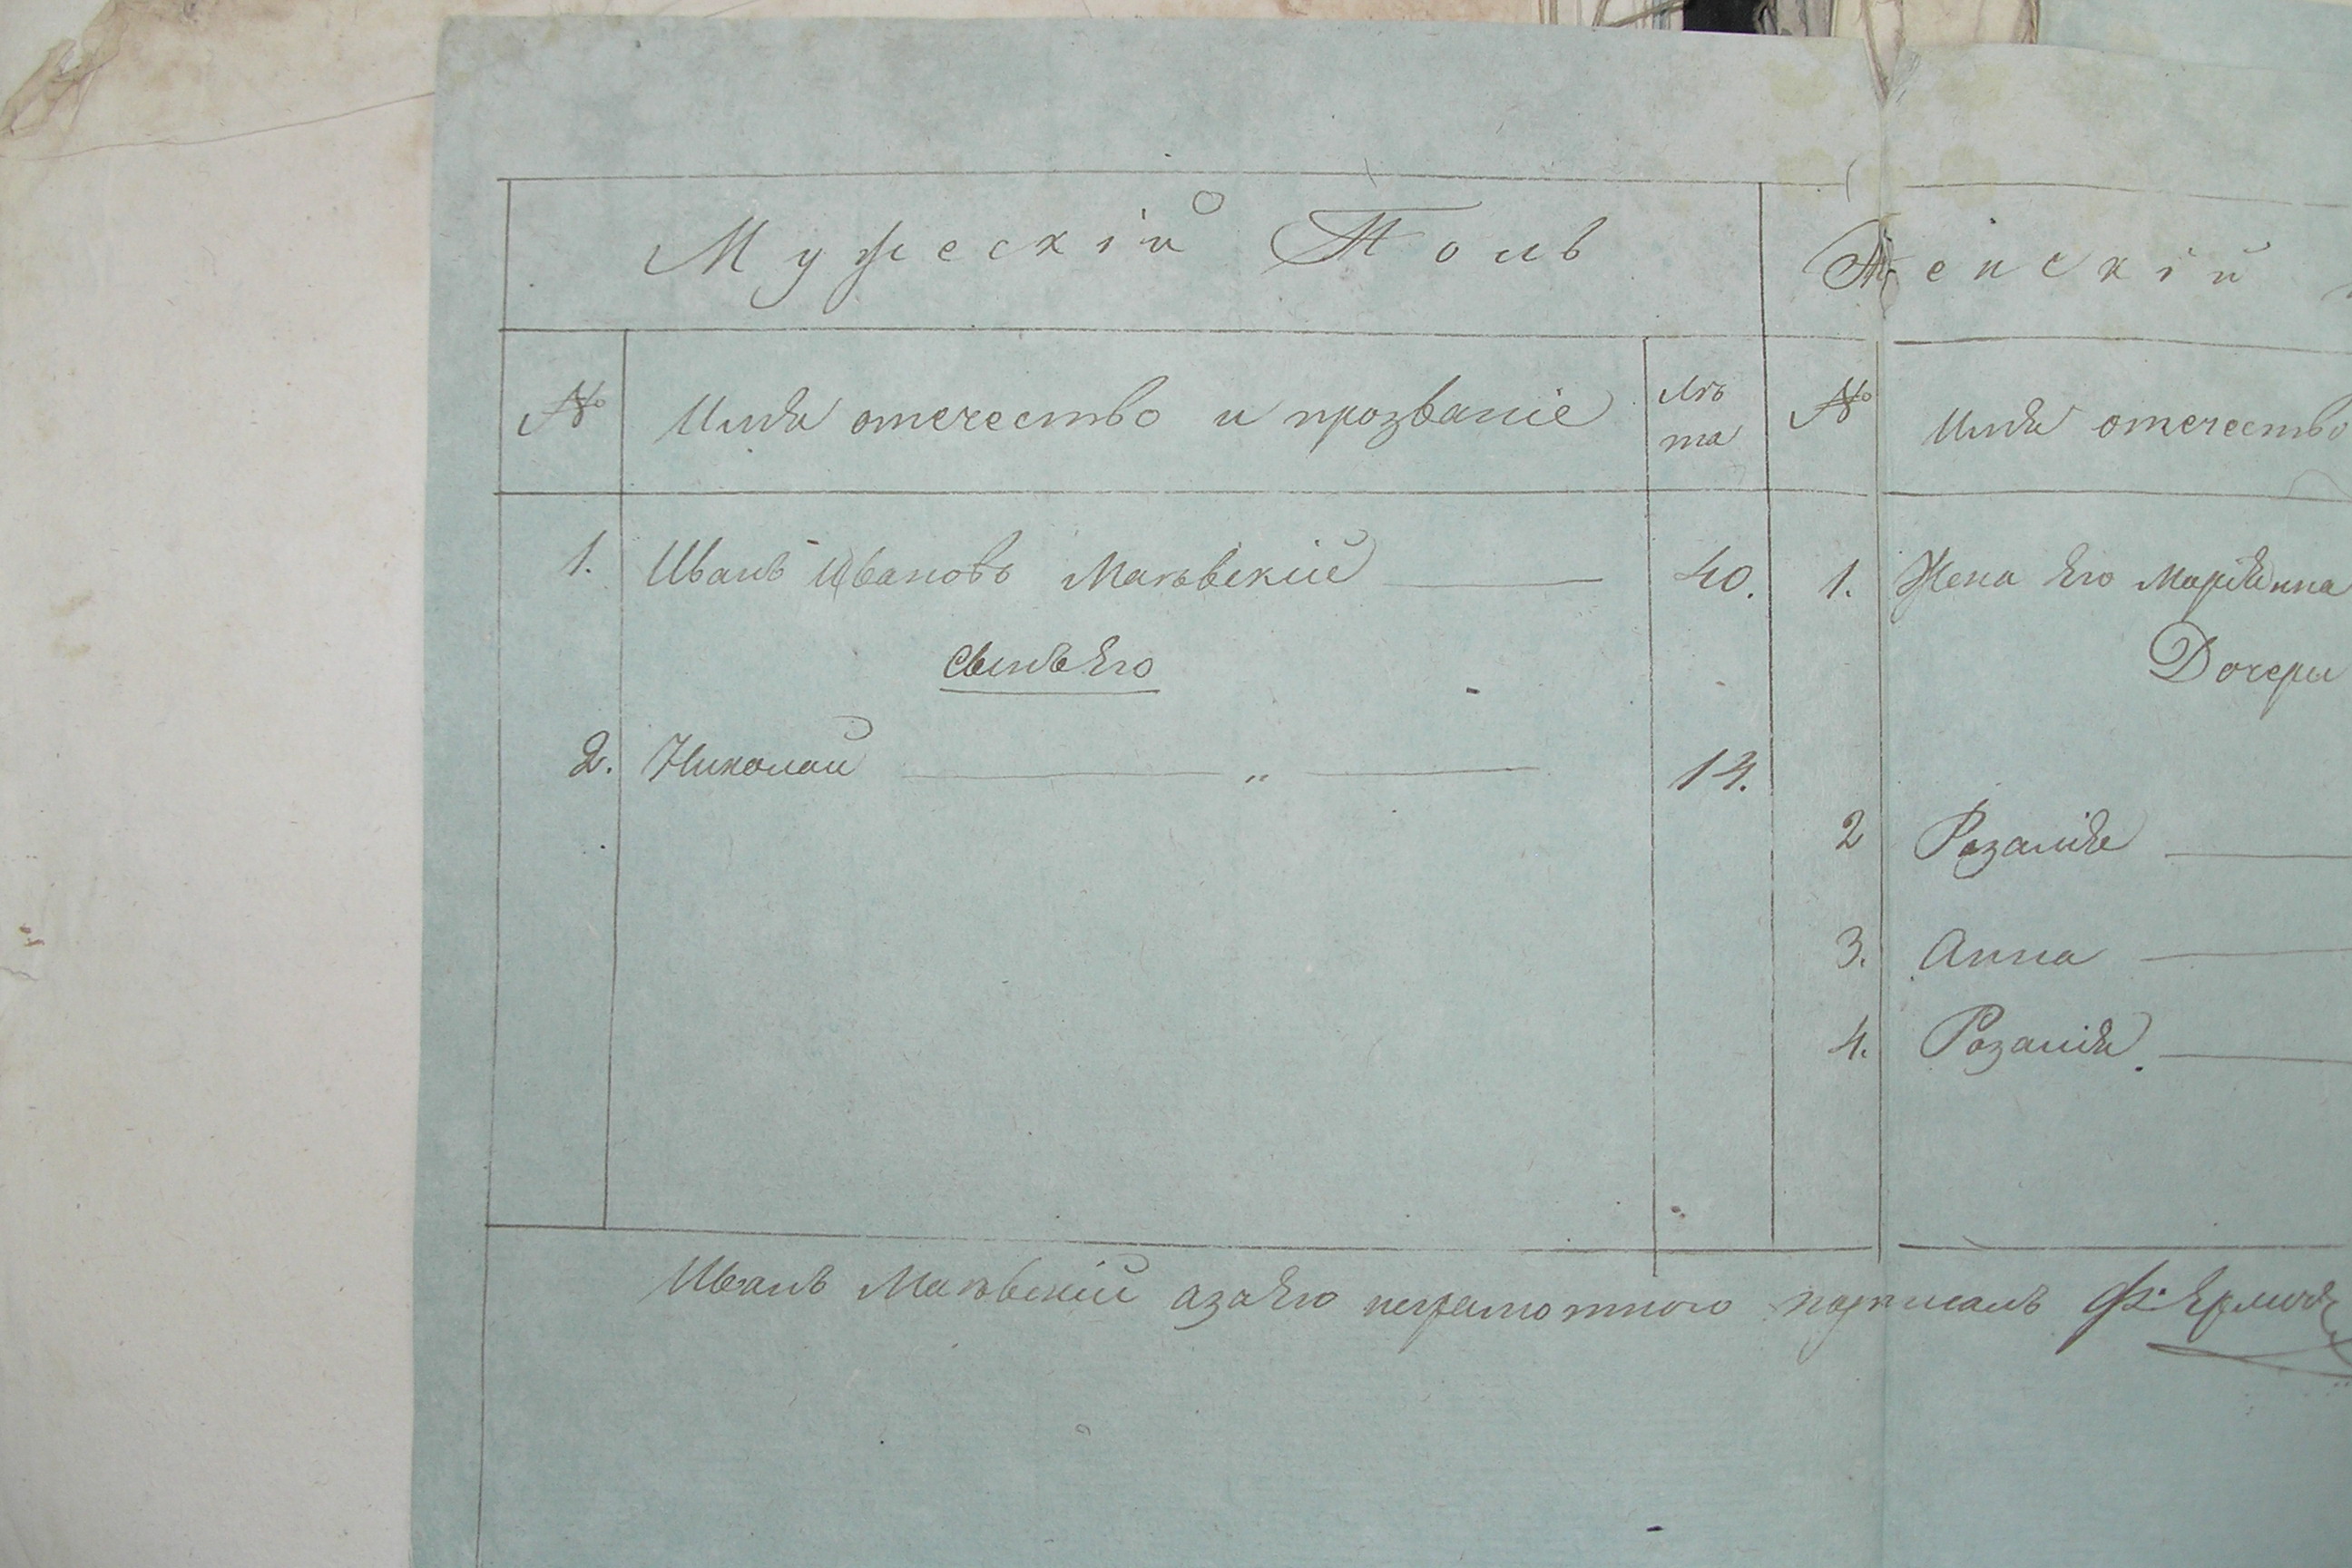 Мужескій Полъ
Женскій
№ Имя отечество и прозваніе Лѣ
та
№ Имя отечество
1. Иванъ Ивановъ Маковскій 40.
1. Жена Его Маріянна
Сынъ Его
Дочери
2. Николай — „ — 14.
2 Розалія
3. Анна
4. Розалія
Иванъ Маковскій азаЕго неграмотного подписалъ